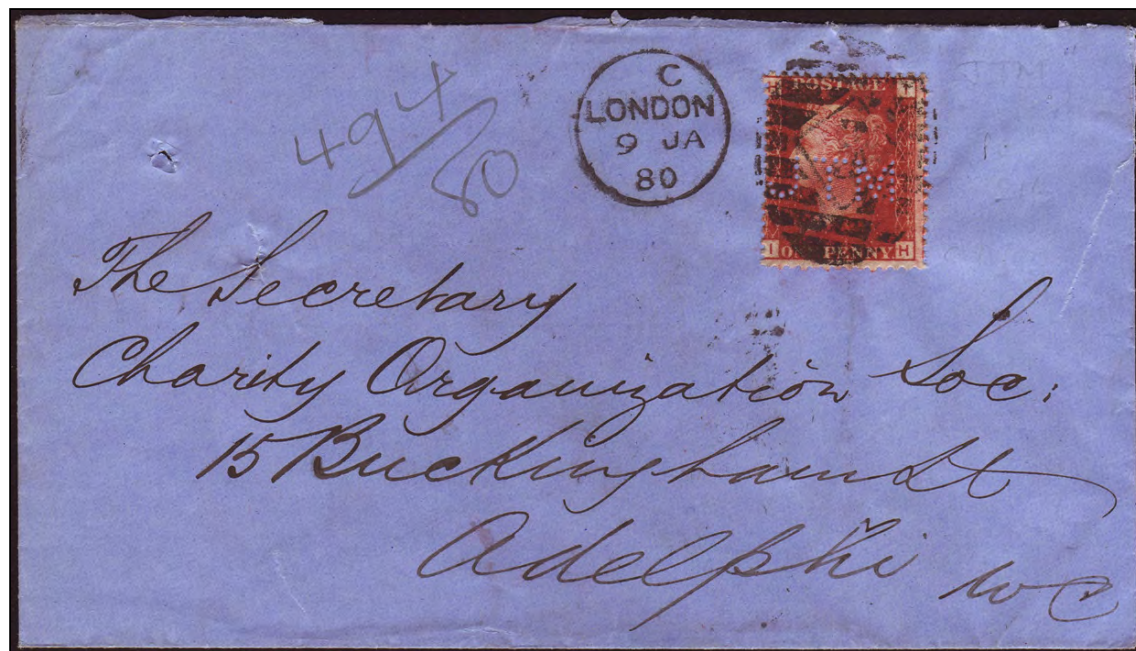 C
LONDON
9 JA
80
494/80
POSTAGE
JTM
I ONE PENNY H
JTM
The Secretary
Charity Organization Soc:
15 Buckingham St
Adelphi
WC